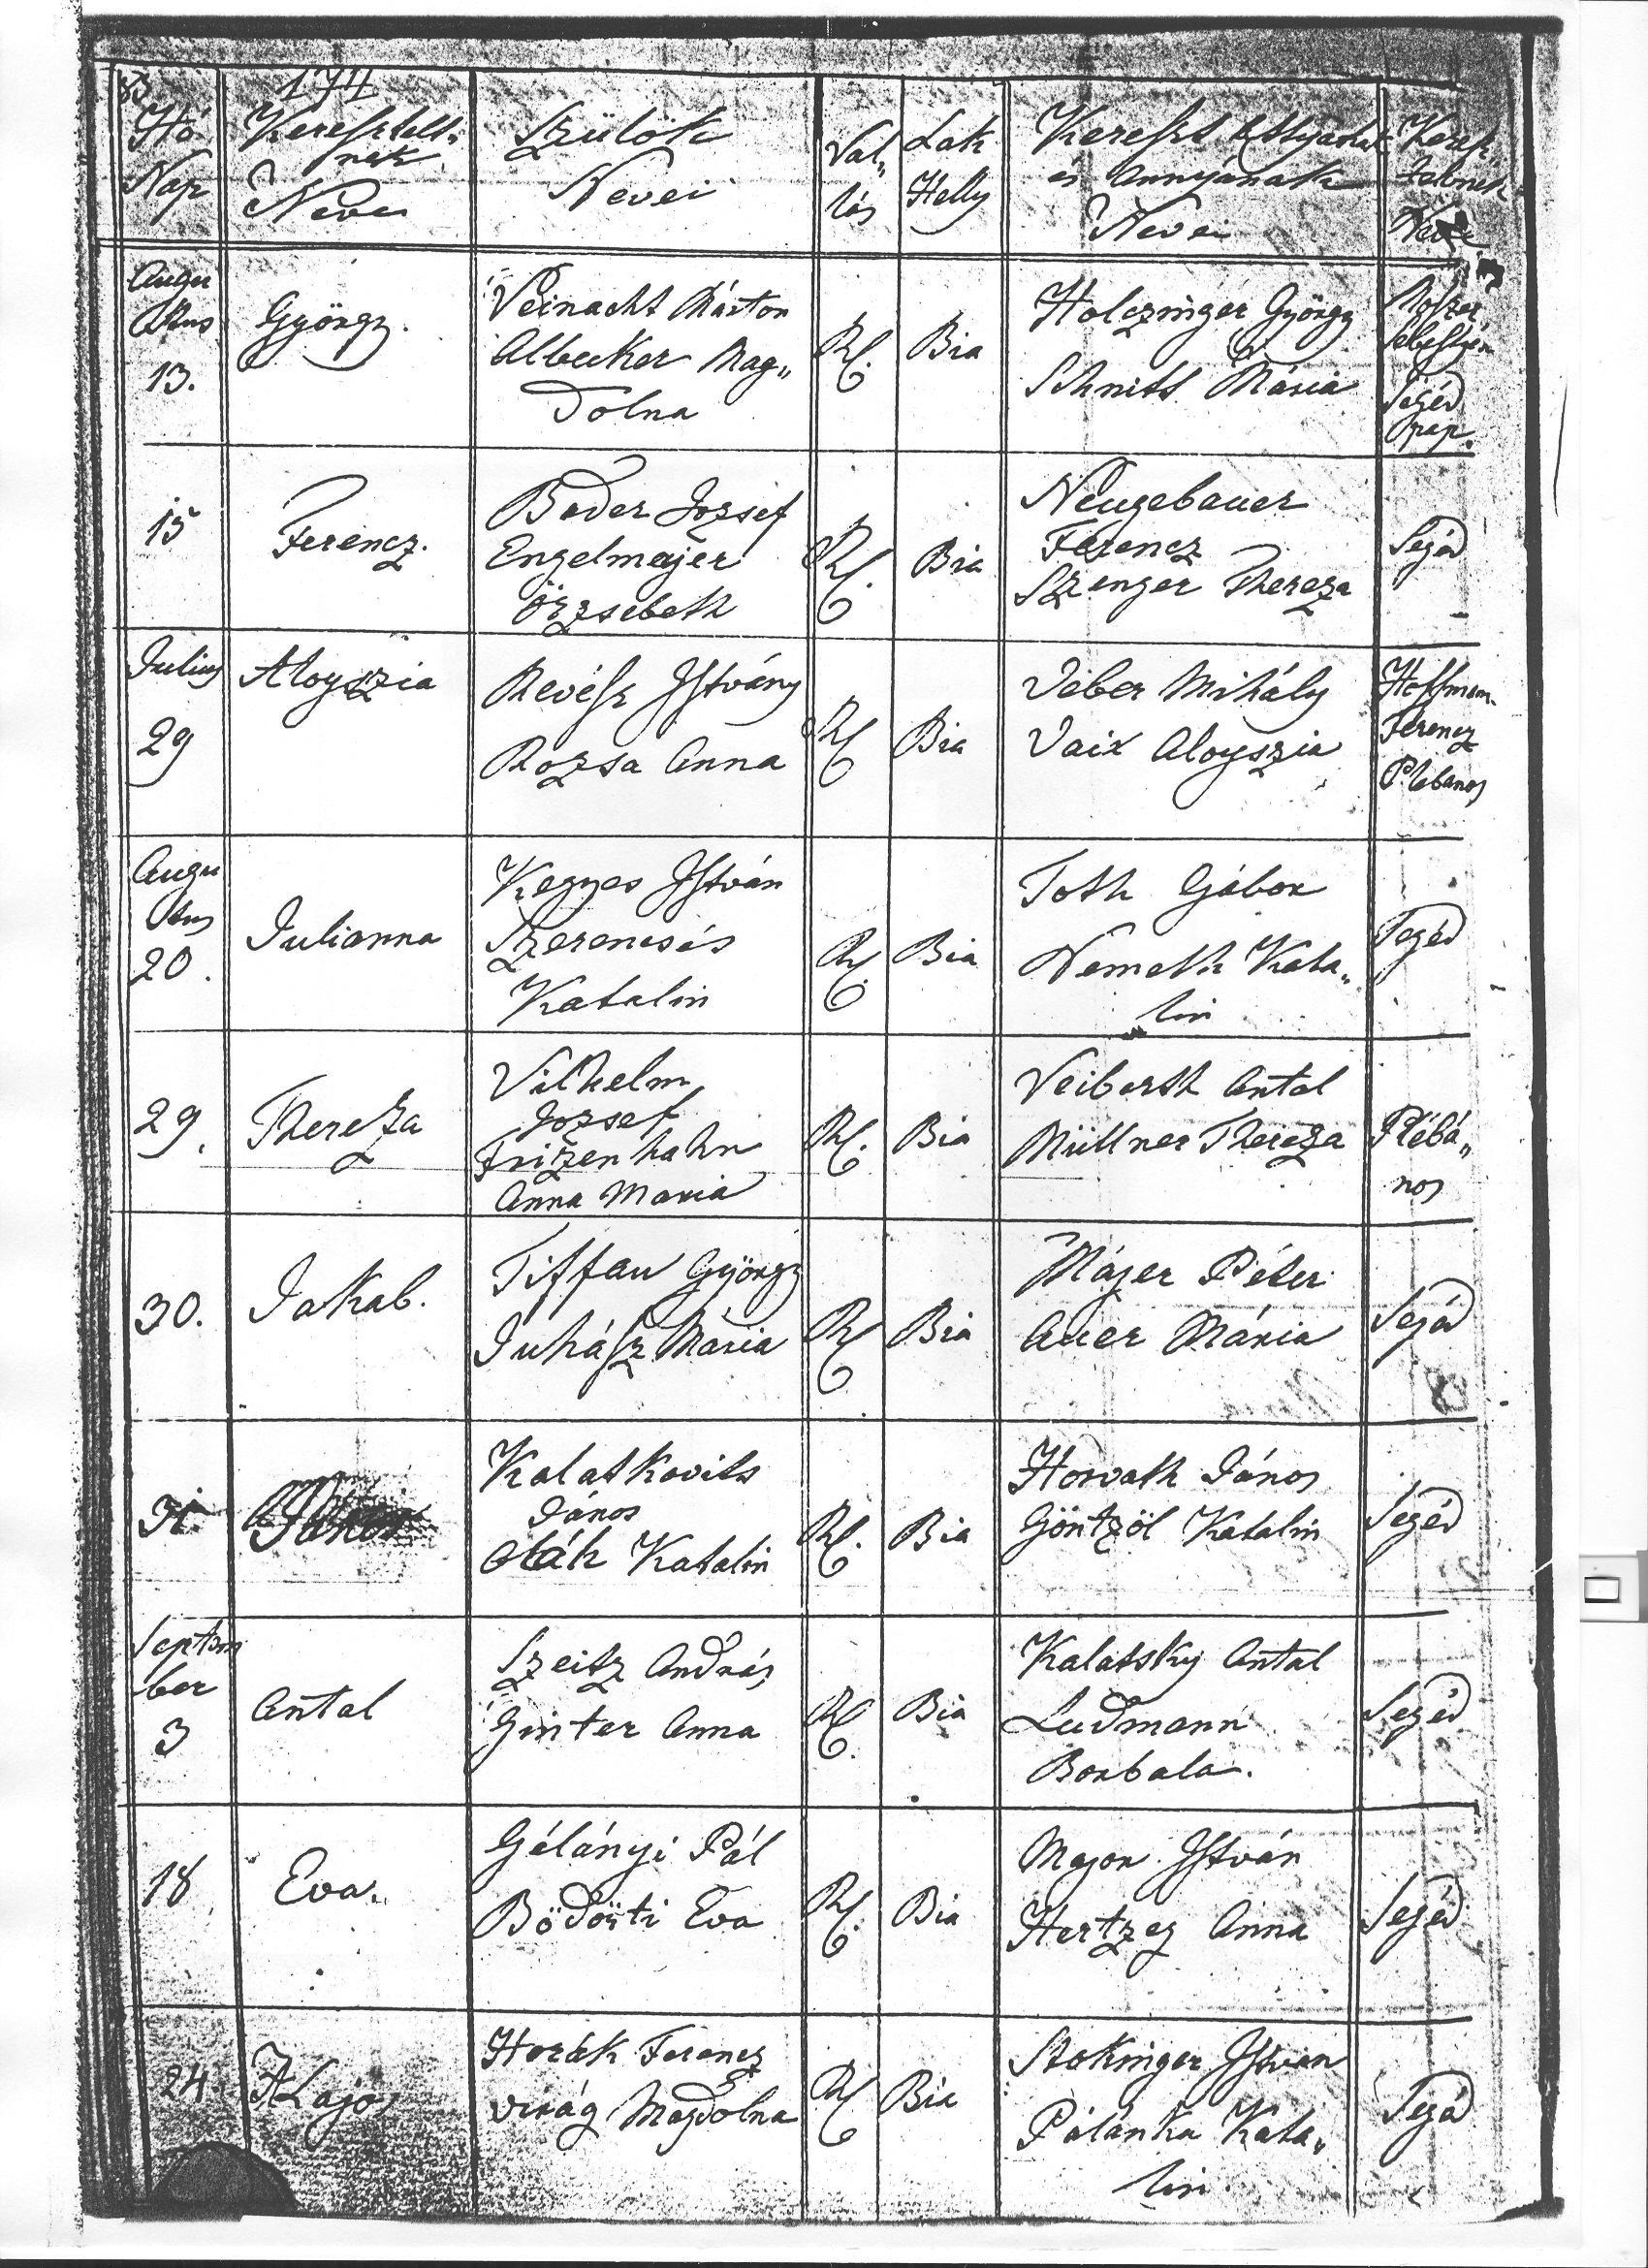 Hó
Nap
Keresztelt-
nek
Neve
Szülök
Nevei
Val„
lás
Lak
Helly
Kereszt Attyának
és Annyának
Nevei
Keresz
telőnek
Neve
Augu
stus
13.
György.
Veinacht Márton
Albecker Mag„
dolna
RC.
Bia
Holczinger György
Schnitt Mária
Sebestyén
Segéd
pap.
15
Ferencz.
Bader Jozsef
Engelmajer
Örzsebeth
RC.
Bia
Neugebauer
Ferencz
Szenger Thereza
Segéd
Julius
29
Aloyszia
Révész István
Rozsa Anna
RC
Bia
Véber Mihály
Vaix Aloyszia
Hoffman
Ferencz
Plebanos
Augu
stus
20.
Julianna
Kegyes István
Szerencsés
Katalin
RC.
Bia
Toth Gábor
Nemeth Kata„
lin
Segéd
29.
Thereza
Vilhelm
Jozsef
Frizenhahn
Anna Maria
RC.
Bia
Veiberth Antal
Müllner Thereza
Plébá„
nos
30.
Jakab.
Tiffau György
Juhász Mária
RC
Bia
Májer Péter
Auer Mária
Segéd
31.
Kalatkovits
János
Oláh Katalin
RC.
Bia
Horvath János
Göntzöl Katalin
Segéd
Septem
ber
3
Antal
Szeitz András
Ginter Anna
RC.
Bia
Kalatsky Antal
Ludmann
Borbala.
Segéd
18
Eva.
Gélányi Pál
Bödöti Eva
RC.
Bia
Major István
Hertzeg Anna
Segéd
24.
Lajos
Horák Ferencz
Virág Magdolna
RC
Bia
Stokinger Istvan
Pálánka Kata„
lin
Segéd